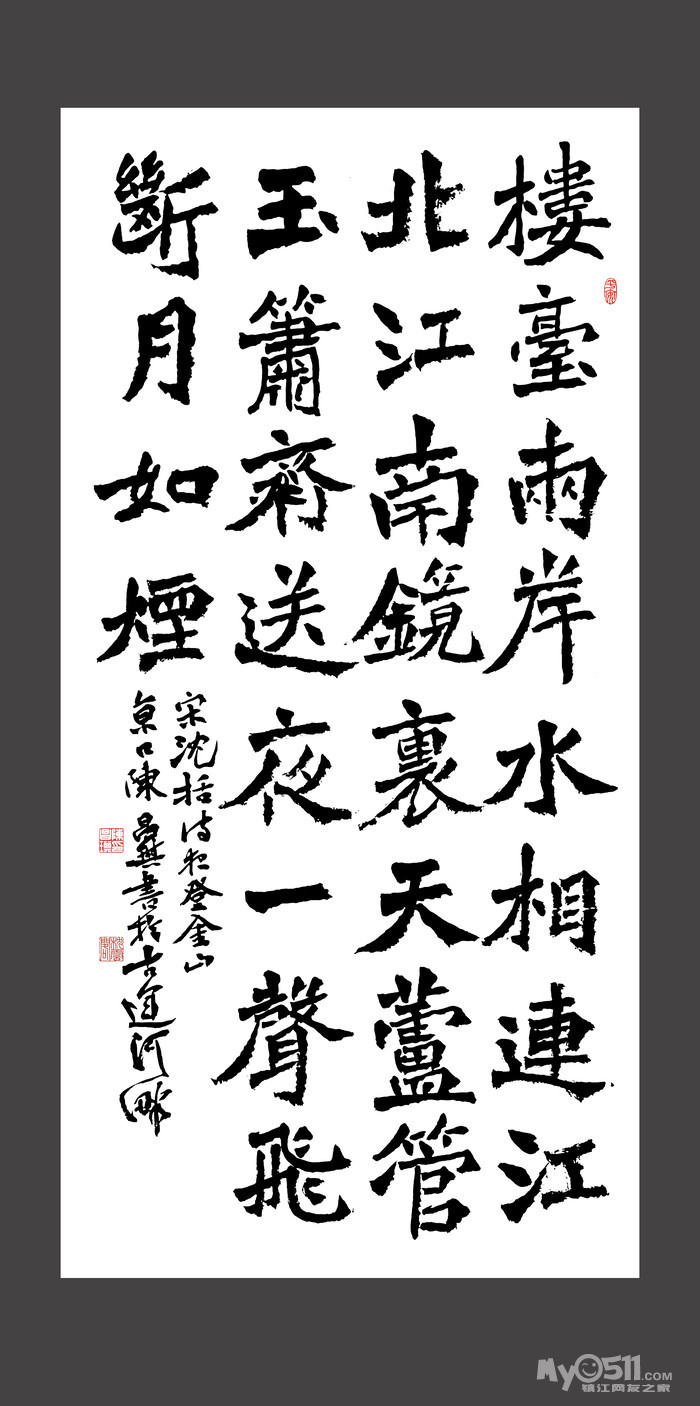 樓臺兩岸水相連江
北江南鏡裏天蘆管
玉簫齊送夜一聲飛
斷月如煙
宋沈括诗夜登金山
京口陳昌書於古運河畔
My0511.COM
镇江网友之家